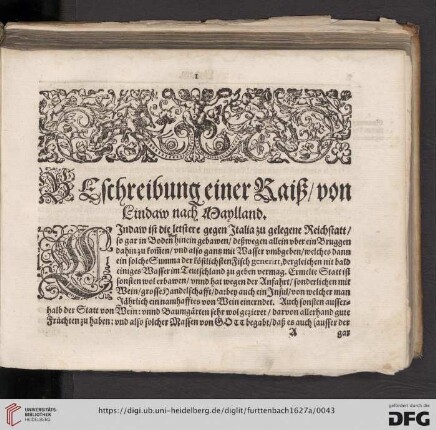 1
BEschreibung einer Raiß/von
Lindaw nach Maylland.
LIndaw ist die letstere gegen Italia zu gelegene Reichstatt/
so gar in Boden hinein gebawen/ deßwegen allein vber ein Bruggen
dahin zu kom̃en/ vnd also gantz mit Wasser vmbgeben/ welches dann
ein solche Summa der köstlichsten Fisch generirt, dergleichen nit bald
einiges Wasser im Teutschland zu geben vermag. Ermelte Statt ist
sonsten wol erbawen/ vnnd hat wegen der Anfahrt/ sonderlichen mit
Wein/ grosse Handelschafft/ darbey auch ein Insul/ von welcher man
Jährlich ein namhafftes von Wein einerndet. Auch sonsten ausser-
halb der Statt von Wein: vnnd Baumgärten sehr wol gezieret/ darvon allerhand gute
Früchten zu haben: vnd also solcher Massen von GOTT begabt/ daß es auch (ausser der
A
gar
UNIVERSITÄTS-
BIBLIOTHEK
HEIDELBERG
https://digi.ub.uni-heidelberg.de/diglit/furttenbach1627a/0043
gefördert durch die
DFG